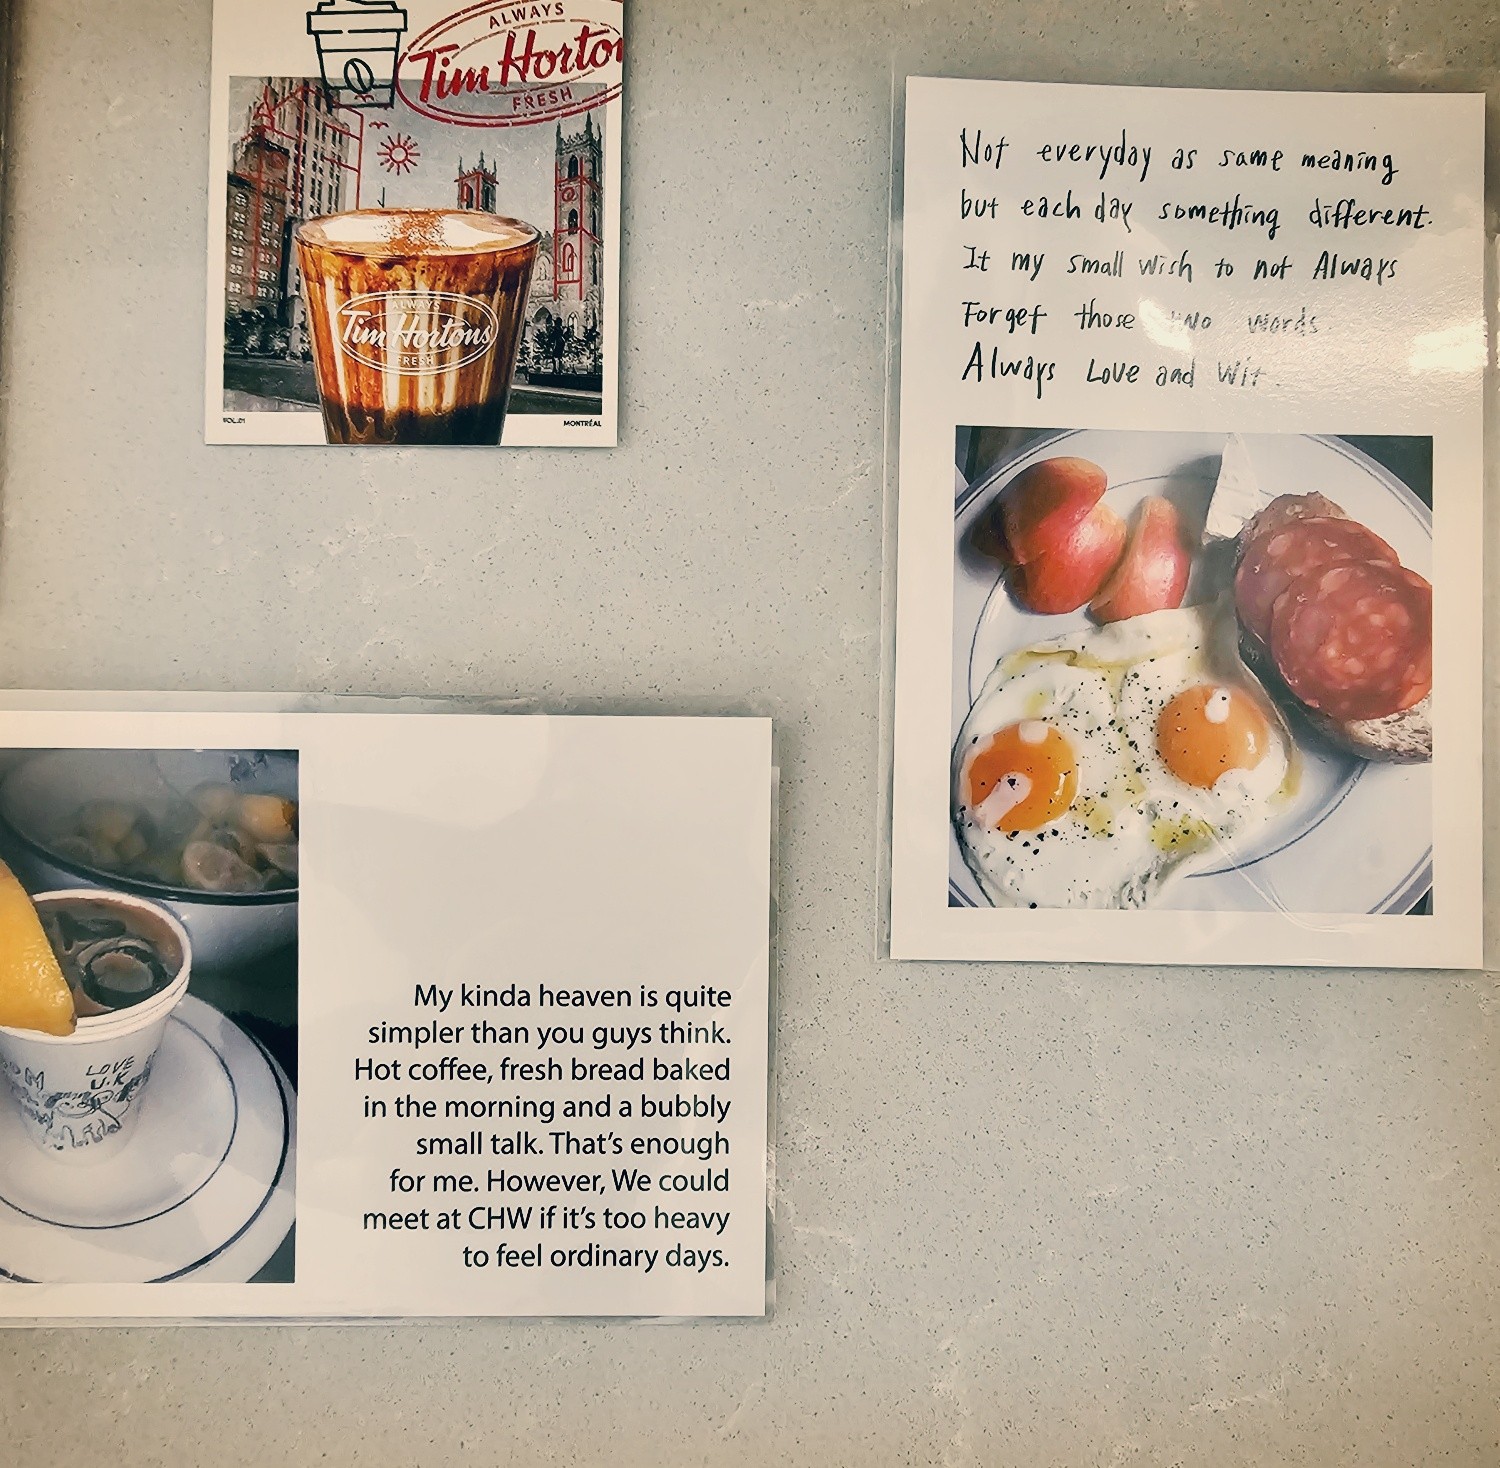 ALWAYS
Tim Horto
FRESH
ALWAYS
Tim Hortons
FRESH
VOL.01
MONTRÉAL
Not everyday as same meaning
but each day something different.
It my small wish to not Always
Forget those two words.
Always Love and Wit.
LOVE
U.K
My kinda heaven is quite
simpler than you guys think.
Hot coffee, fresh bread baked
in the morning and a bubbly
small talk. That's enough
for me. However, We could
meet at CHW if it's too heavy
to feel ordinary days.